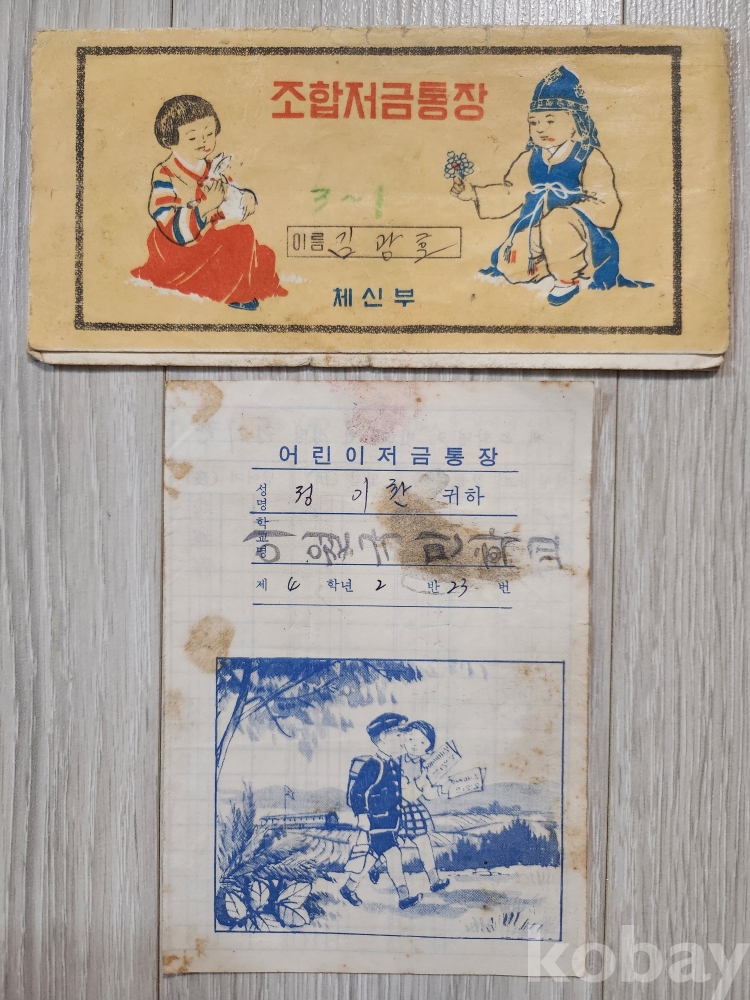 조합저금통장
3~1
이름 김광호
체신부
어린이저금통장
성명 정이찬 귀하
학교명 이월국민학교
제 4 학년 2 반 23 번
kobay